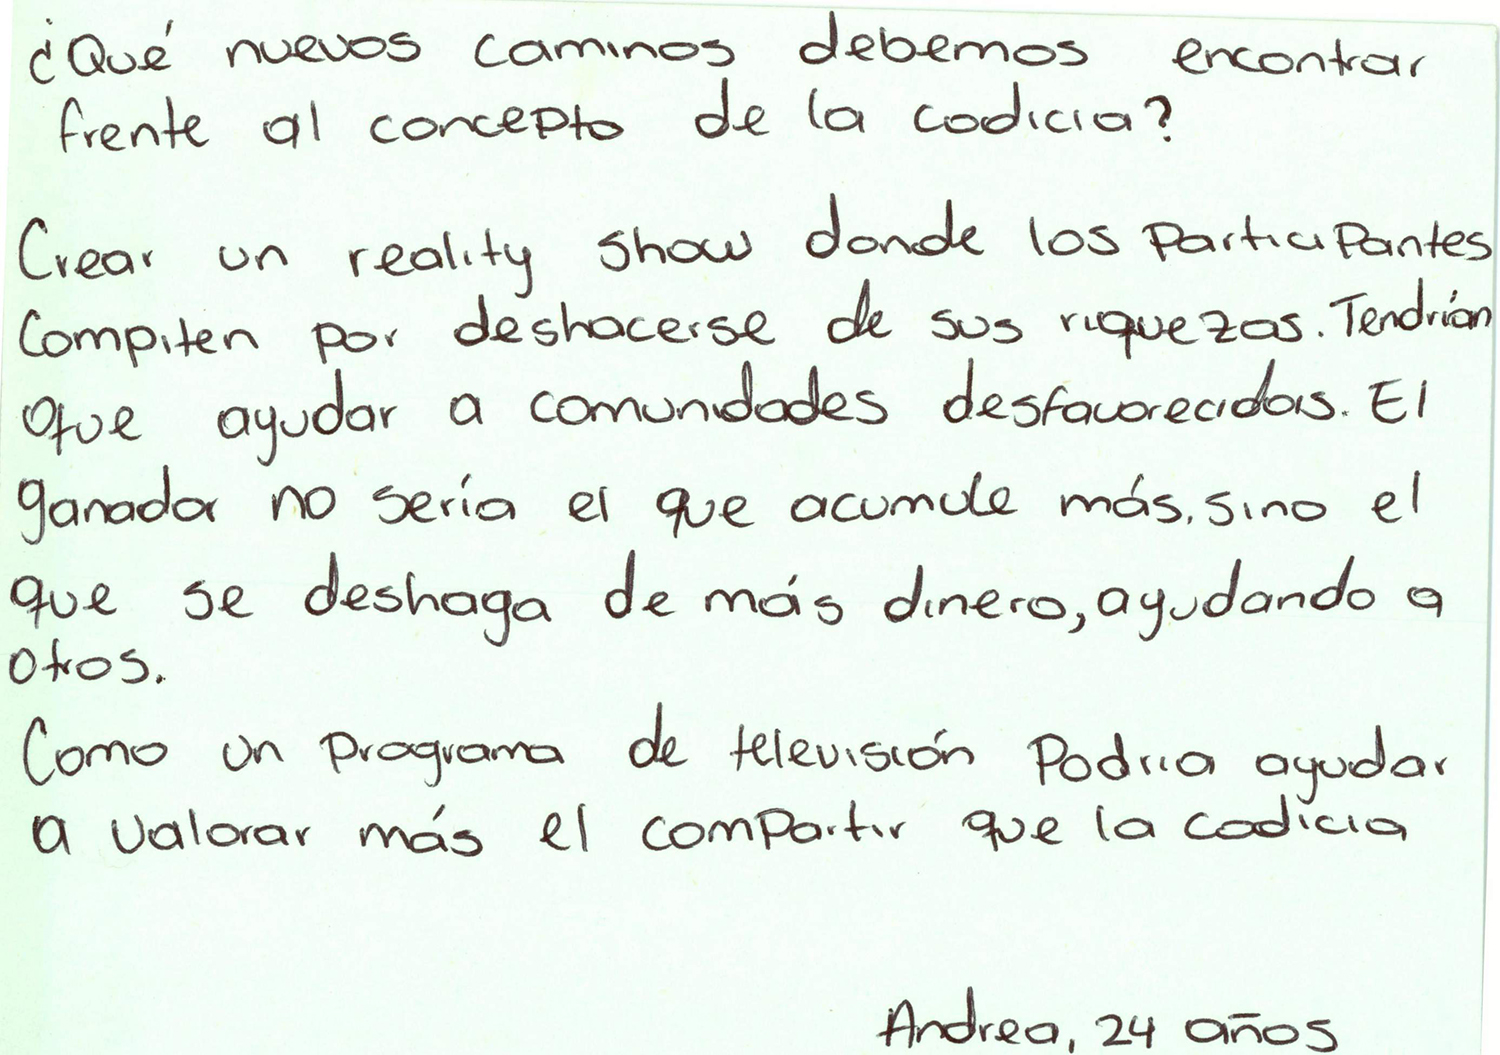 ¿Qué nuevos caminos debemos encontrar
frente al concepto de la codicia?
Crear un reality show donde los participantes
compiten por deshacerse de sus riquezas. Tendrían
que ayudar a comunidades desfavorecidas. El
ganador no sería el que acumule más, sino el
que se deshaga de más dinero, ayudando a
otros.
Como un programa de televisión podría ayudar
a valorar más el compartir que la codicia
Andrea, 24 años